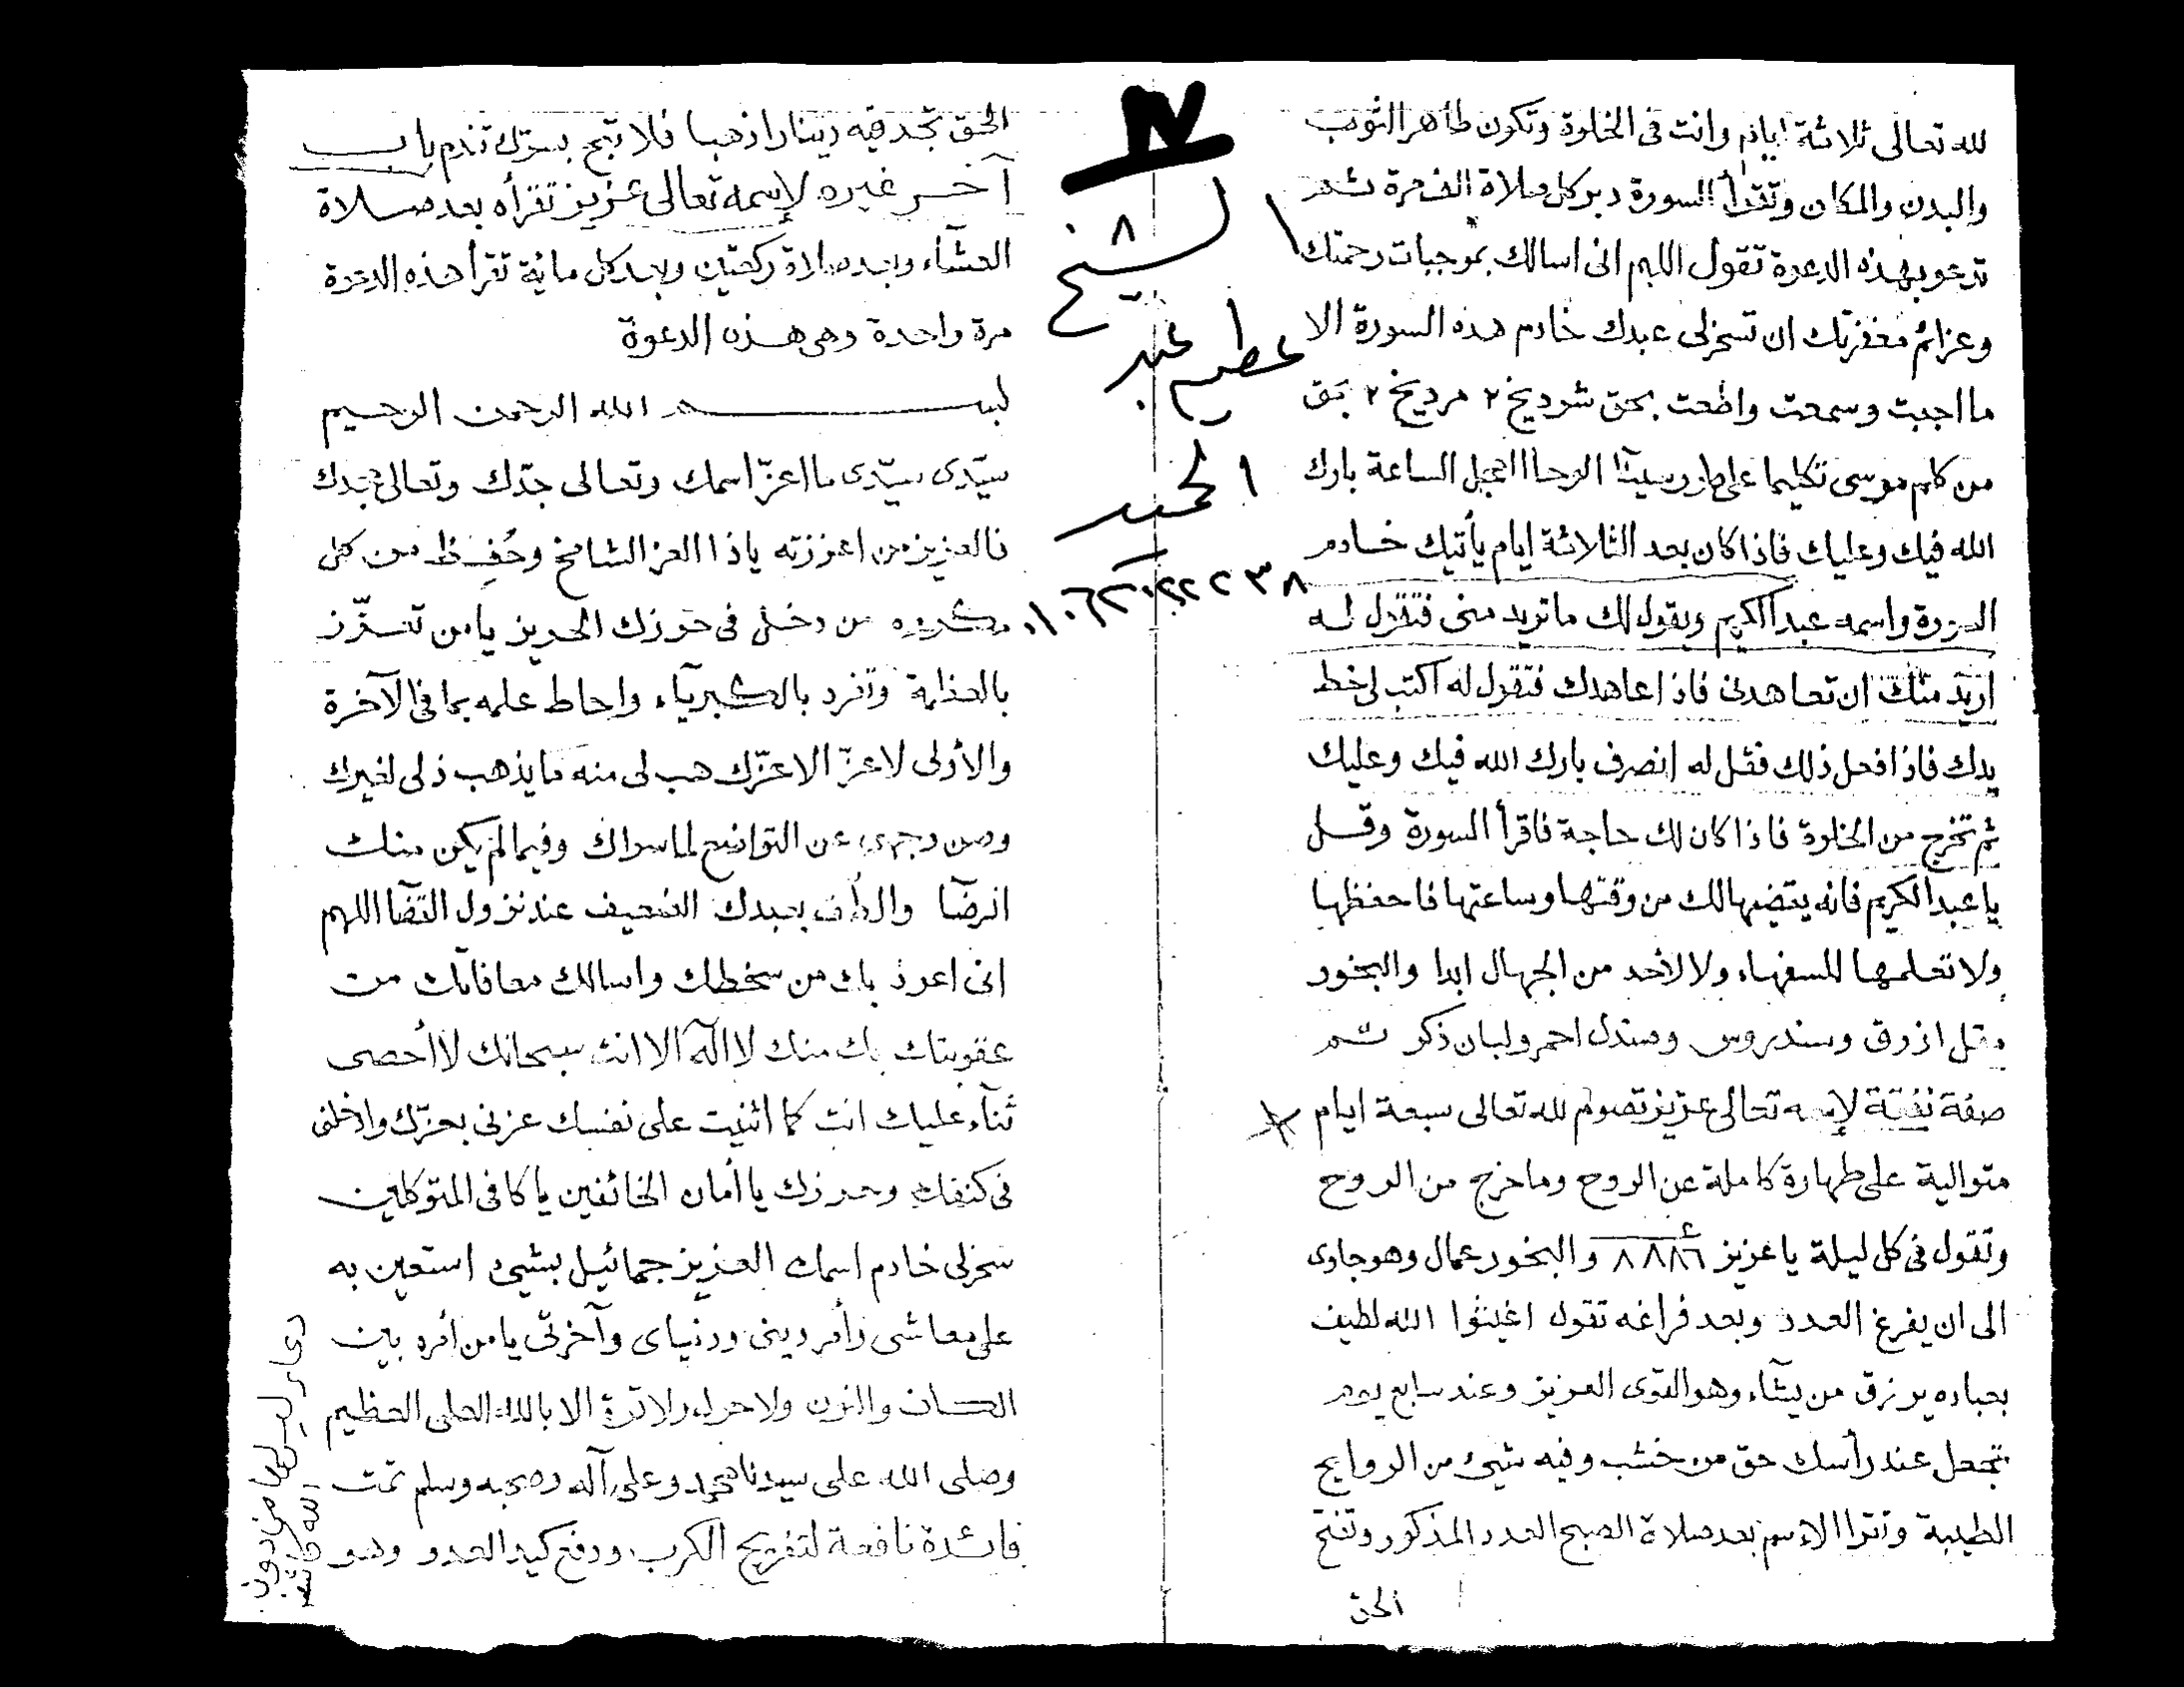 لله تعالى ثلاثة ايام وانت فى الخلوة وتكون طاهر الثوب
والبدن والمكان وتقرأ السورة دبر كل صلاة الف مرة ثم
تدعو بهذه الدعوة تقول اللهم انى اسالك بموجبات رحمتك
وعزائم مغفرتك ان تسخرلى عبدك خادم هذه السورة الا
ما اجبت وسمعت واطعت بحق شرديخ ٢ مرديخ ٢ بحق
من كلم موسى تكليما على طور سينا الوحا العجل الساعة بارك
الله فيك وعليك فاذا كان بعد الثلاثة ايام يأتيك خادم
السورة واسمه عبد الكريم ويقول لك ما تريد منى فتقول له
اريد منك ان تعاهدنى فاذا عاهدك فتقول له اكتب لى خط
يدك فاذا فعل ذلك فقل له انصرف بارك الله فيك وعليك
ثم تخرج من الخلوة فاذا كان لك حاجة فاقرأ السورة وقل
يا عبد الكريم فانه يقضيها لك من وقتها وساعتها فاحفظها
ولا تعلمها للسفهاء ولا لأحد من الجهال ابدا والبخور
مقل ازرق وسندروس وصندل احمر ولبان ذكر ثم
صفة نفقة لإسمه تعالى عزيز تصوم لله تعالى سبعة ايام
متوالية على طهارة كاملة عن الروح وما خرج من الروح
وتقول فى كل ليلة يا عزيز ٨٨٨٦ والبخور عمال وهو جاوى
الى ان يفرغ العدد وبعد فراغه تقول اغيثوا الله لطيف
بعباده يرزق من يشآء وهو القوى العزيز وعند سابع يوم
تجعل عند رأسك حق من خشب وفيه شيئ من الروايح
الطيبة وتقرا الاسم بعد صلاة الصبح العدد المذكور وتفتح
الحق
٨
الشيخ
عبد
الحميد
الحق تجد فيه دينارا ذهبا فلا تبح بسرك تندم باب
آخر غيره لإسمه تعالى عزيز تقرأه بعد صلاة
العشآء وبعد صلاة ركعتين وبعد كل مائة تقرأ هذه الدعوة
مرة واحدة وهى هذه الدعوة
بسم الله الرحمن الرحيم
سيّدى سيّدى ما اعزّ اسمك وتعالى جدّك وتعالى مجدك
فالعزيز من اعززته ياذا العز الشامخ وحُفِظ من كل
مكروه من دخل فى حرزك الحريز يا من تعزّز
بالعظمة وتفرد بالكبرياء واحاط علمه بما فى الآخرة
والأولى لا عزّ الا عزّك هب لى منه ما يذهب ذلى لغيرك
وصن وجهى عن التواضع لما سواك وفيما لم يكن منك
الرضآ والطف بعبدك الضعيف عند نزول القضا اللهم
انى اعوذ بك من سخطك واسالك معافاتك من
عقوبتك بك منك لا اله الا انت سبحانك لا أحصى
ثنآء عليك انت كما اثنيت على نفسك عزنى بعزّك وادخلنى
فى كنفك وحرزك يا أمان الخائفين يا كافى المتوكلين
سخرلى خادم اسمك العزيز جمائيل بشيئ استعين به
على معاشى وأمر دينى ودنياى وآخرتى يا من أمره بين
الكاف والنون ولا حول ولا قوة الا بالله العلى العظيم
وصلى الله على سيدنا محمد وعلى آله وصحبه وسلم تمت
فائدة نافعة لتفريج الكرب ودفع كيد العدو وهو
ليس لها من دون
الله كاشفة